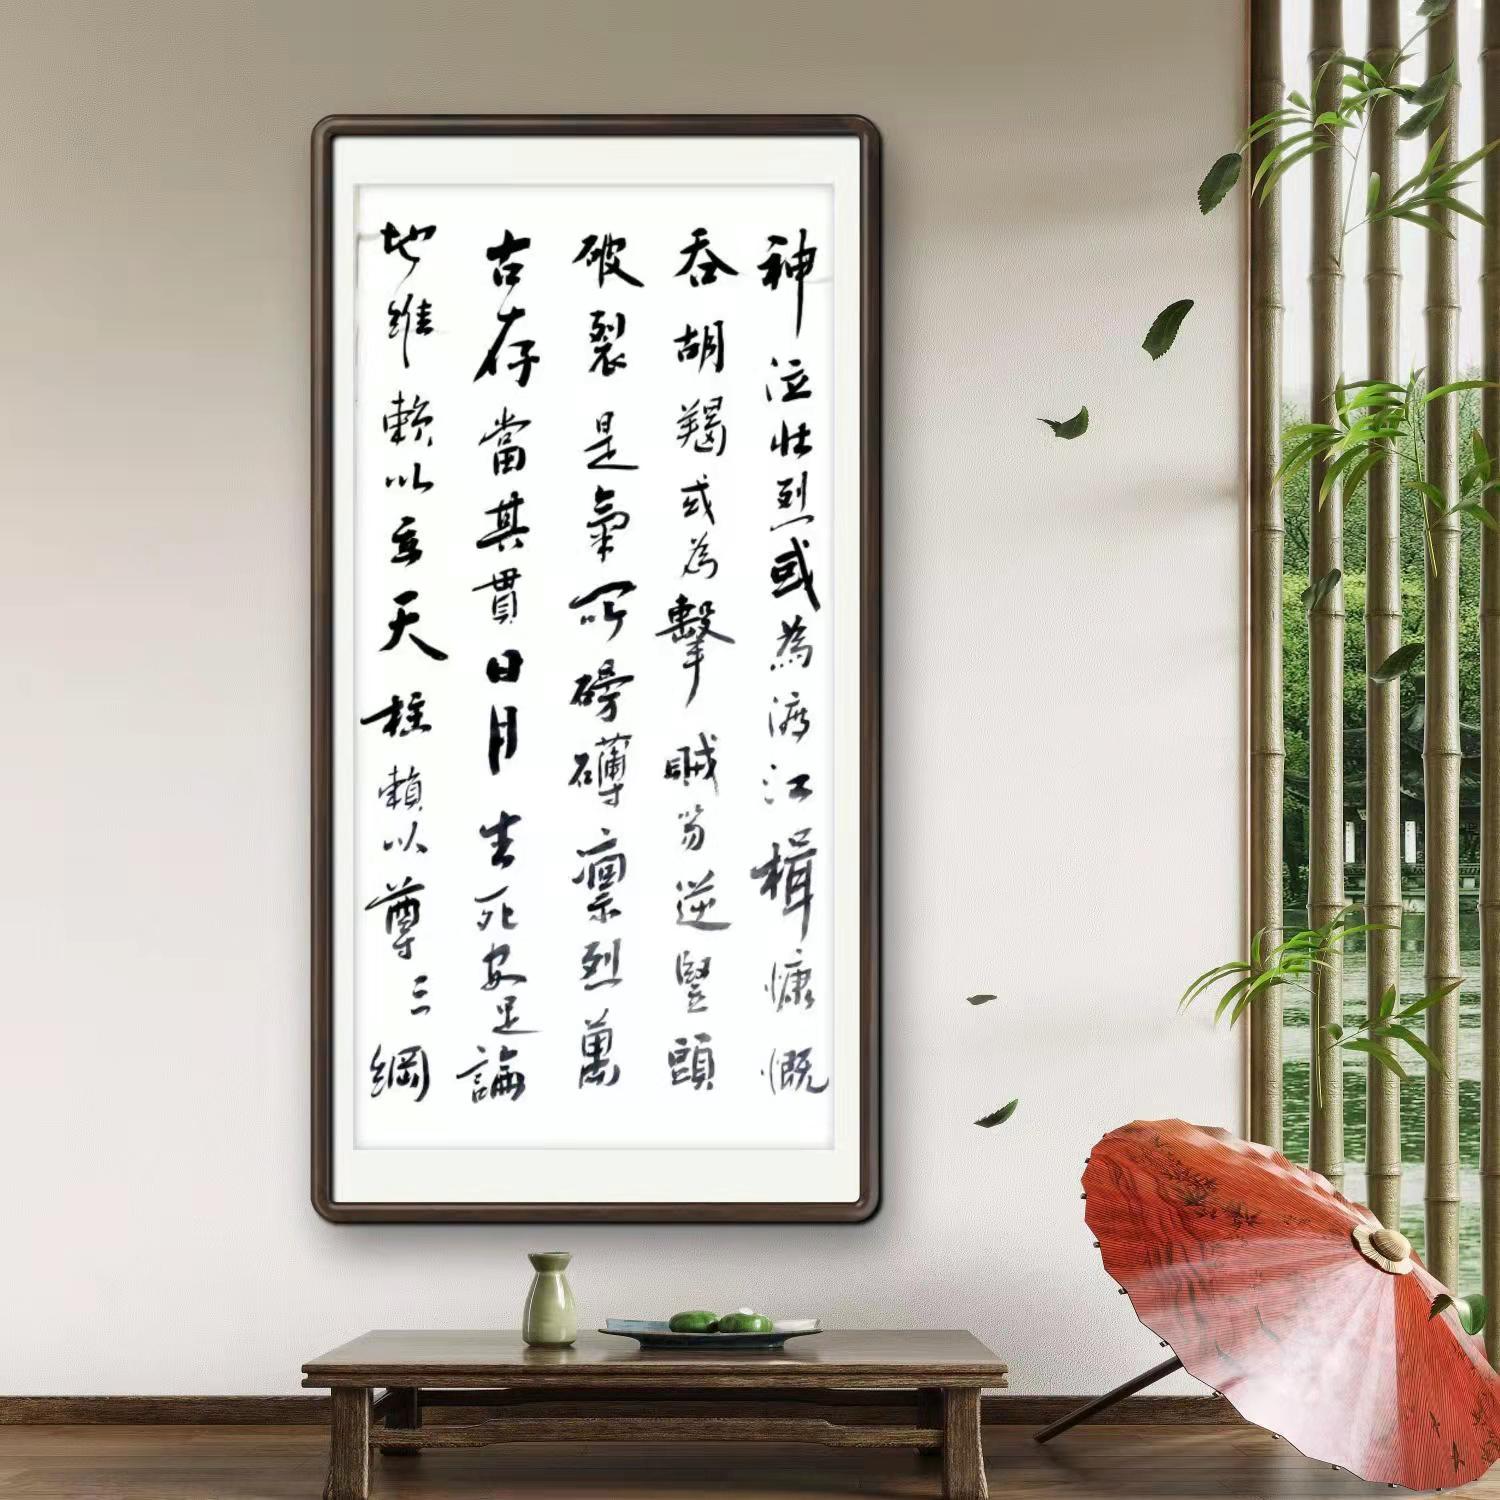 神泣壮烈或為渡江楫慷慨
吞胡羯或為擊賊笏逆豎頭
破裂是氣所磅礴凜烈萬
古存當其貫日月生死安足論
地維賴以立天柱賴以尊三綱